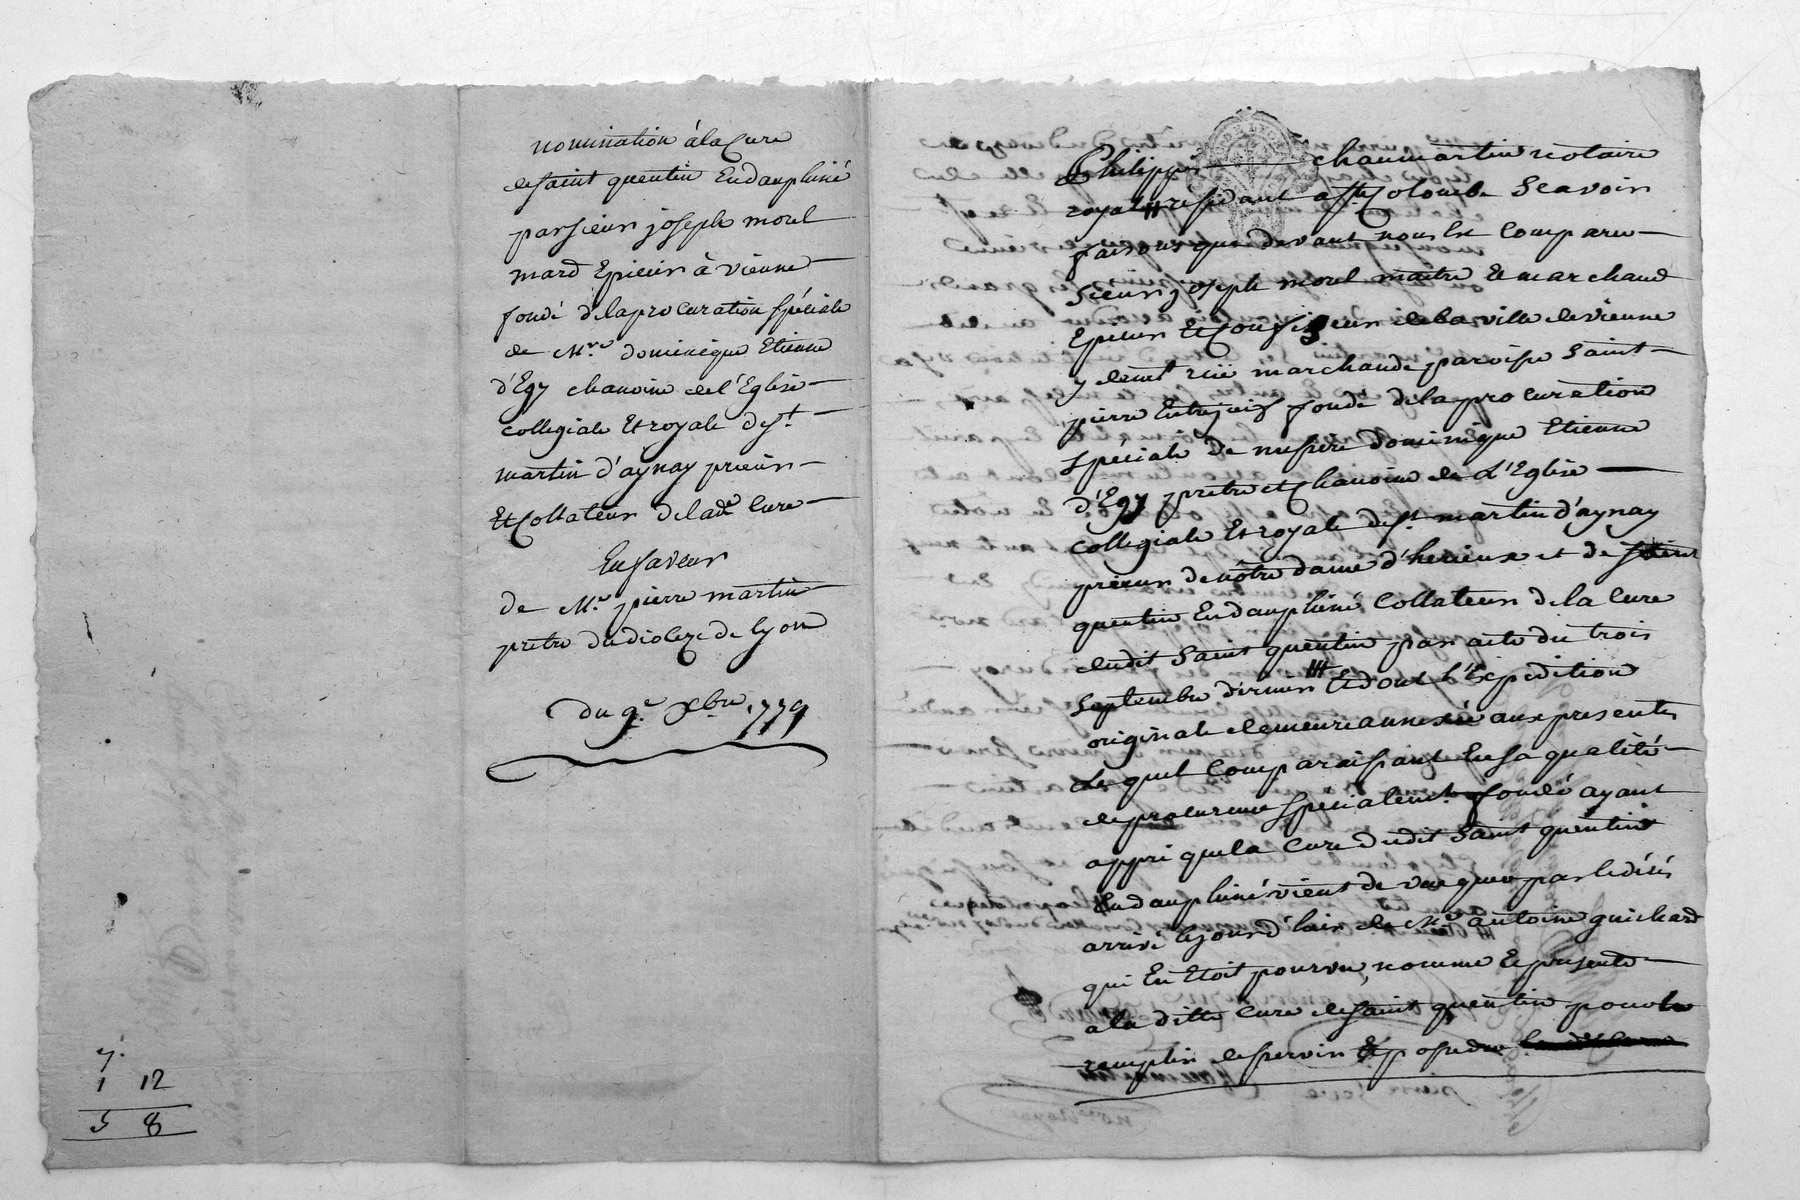 nomination à la Cure
de saint quentin En dauphiné
par sieur joseph morel
mard Epicier à vienne
fondé de la procuration spéciale
de Mre. dominique Etienne
d'Egy chanoine de l'Eglise
collegiale Et royale de st.
martin d'aynay prieur
Et Collateur de lade Cure
En faveur
de Mre. pierre martin
prêtre du diocèze de lyon
Du 9e. Xbre 1779
7.
1 12
5 8
Philippe chaumartin notaire
royal # residant a ste Colombe Scavoir
faisons que devant nous Est Comparu
Sieur joseph morel maitre Et marchand
Epicier Et Confisseur de la ville de vienne
y demt rüe marchande, paroisse Saint
pierre Entre juifs fondé de la procuration
speciale de messire dominique Etienne
d'Egy prêtre et Chanoine de L'Eglise
Collegiale Et royale de st. martin d'aynay
prieur de nôtre dame d'herieux et de saint
quentin En dauphiné Collateur de la Cure
dudit Saint quentin par acte du trois
Septembre dernier Et dont l'Expedition
originale demeure annexée aux presentes
Lequel Comparaissant En sa qualité
de procureur specialemt. fondé ayant
appri que la Cure dudit Saint quentin
En dauphiné vient de vacquer par le décés
arrivé ce jourd'huir de Mre antoine guichard
qui En Etoit pourvu, nomme Et présente
a la ditte Cure de saint quentin pour la
remplir desservir Et posseder